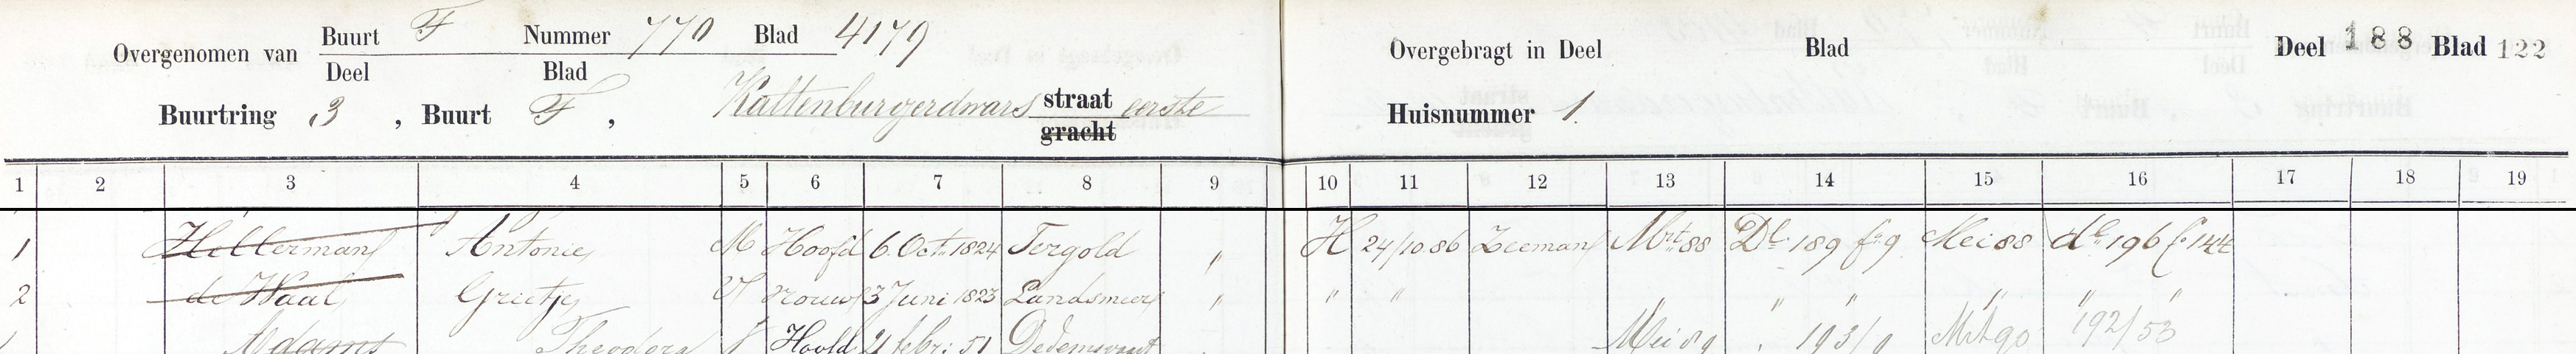 Overgenomen van Buurt F Nummer 770 Blad 4179
Deel Blad
Overgebragt in Deel Blad
Deel 188 Blad 122
Buurtring 3, Buurt F, Kattenburgerdwars straat eerste
gracht
Huisnummer 1
1 2 3 4 5 6 7 8 9 10 11 12 13 14 15 16 17 18 19
1 Hellerman Antonie M Hoofd 6 Oct. 1824 Tergold " H 24/10 86 Zeeman Mrt 88 Dl. 189 fo 9 Mei 88 dl 196 f. 144
2 de Waal Grietje V vrouw 3 Juni 1823 Landsmeer " " " " " " " " "
Adams Theodora Hoofd 21 febr: 51 Dedemsvaart Mei 89 " 193/9 Mrt 90 192/53